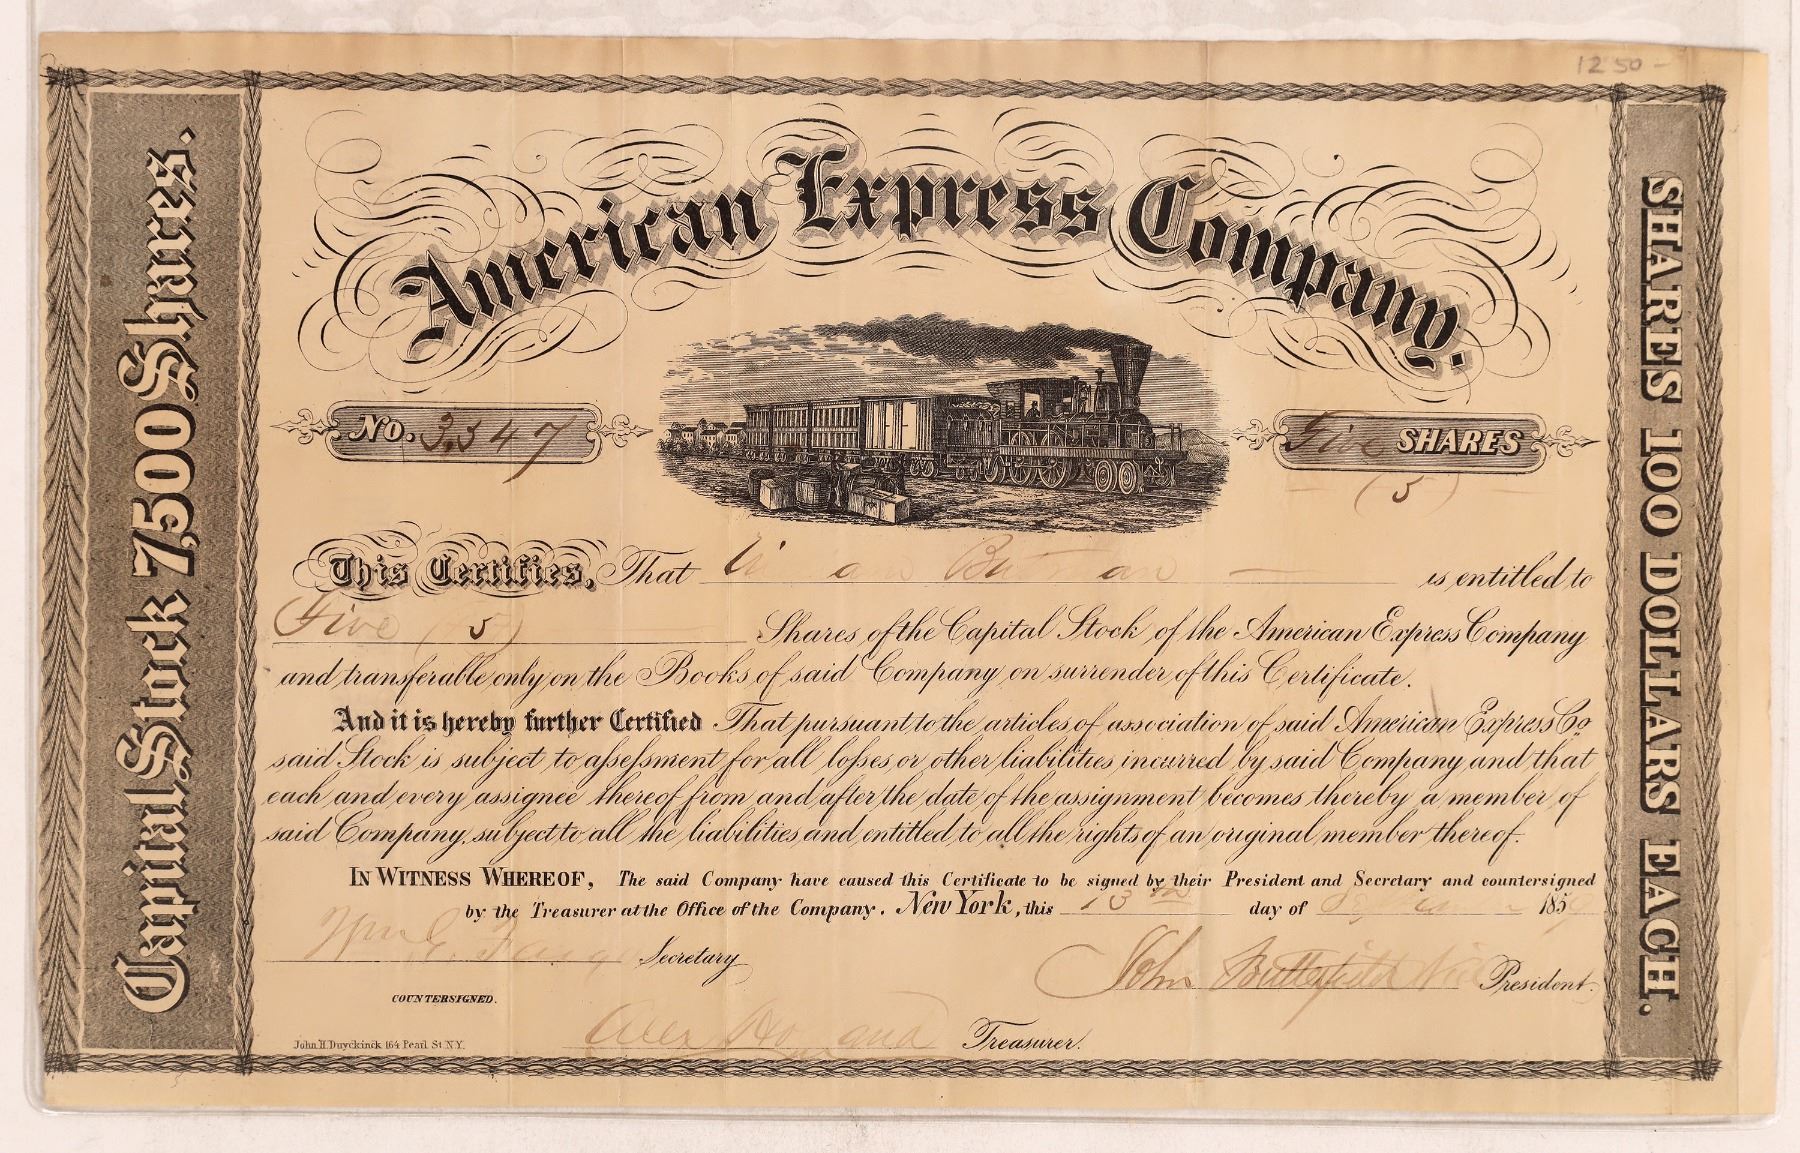 12 50 -
American Express Company.
Capital Stock 7,500 Shares.
SHARES 100 DOLLARS EACH.
No. 3,347
Five SHARES
(5)
This Certifies, That is entitled to
Five (5) Shares of the Capital Stock of the American Express Company
and transferable only on the Books of said Company on surrender of this Certificate.
And it is hereby further Certified That pursuant to the articles of association of said American Express Co.
said Stock is subject to assessment for all losses or other liabilities incurred by said Company and that
each and every assignee thereof from and after the date of the assignment becomes thereby a member of
said Company, subject to all the liabilities and entitled to all the rights of an original member thereof.
IN WITNESS WHEREOF, The said Company have caused this Certificate to be signed by their President and Secretary and countersigned
by the Treasurer at the Office of the Company. New York, this 13th day of 1859
Wm G. Fargo Secretary
John Butterfield Vice President.
COUNTERSIGNED.
Alex Holland Treasurer.
John H Duyckinck 164 Pearl St N.Y.